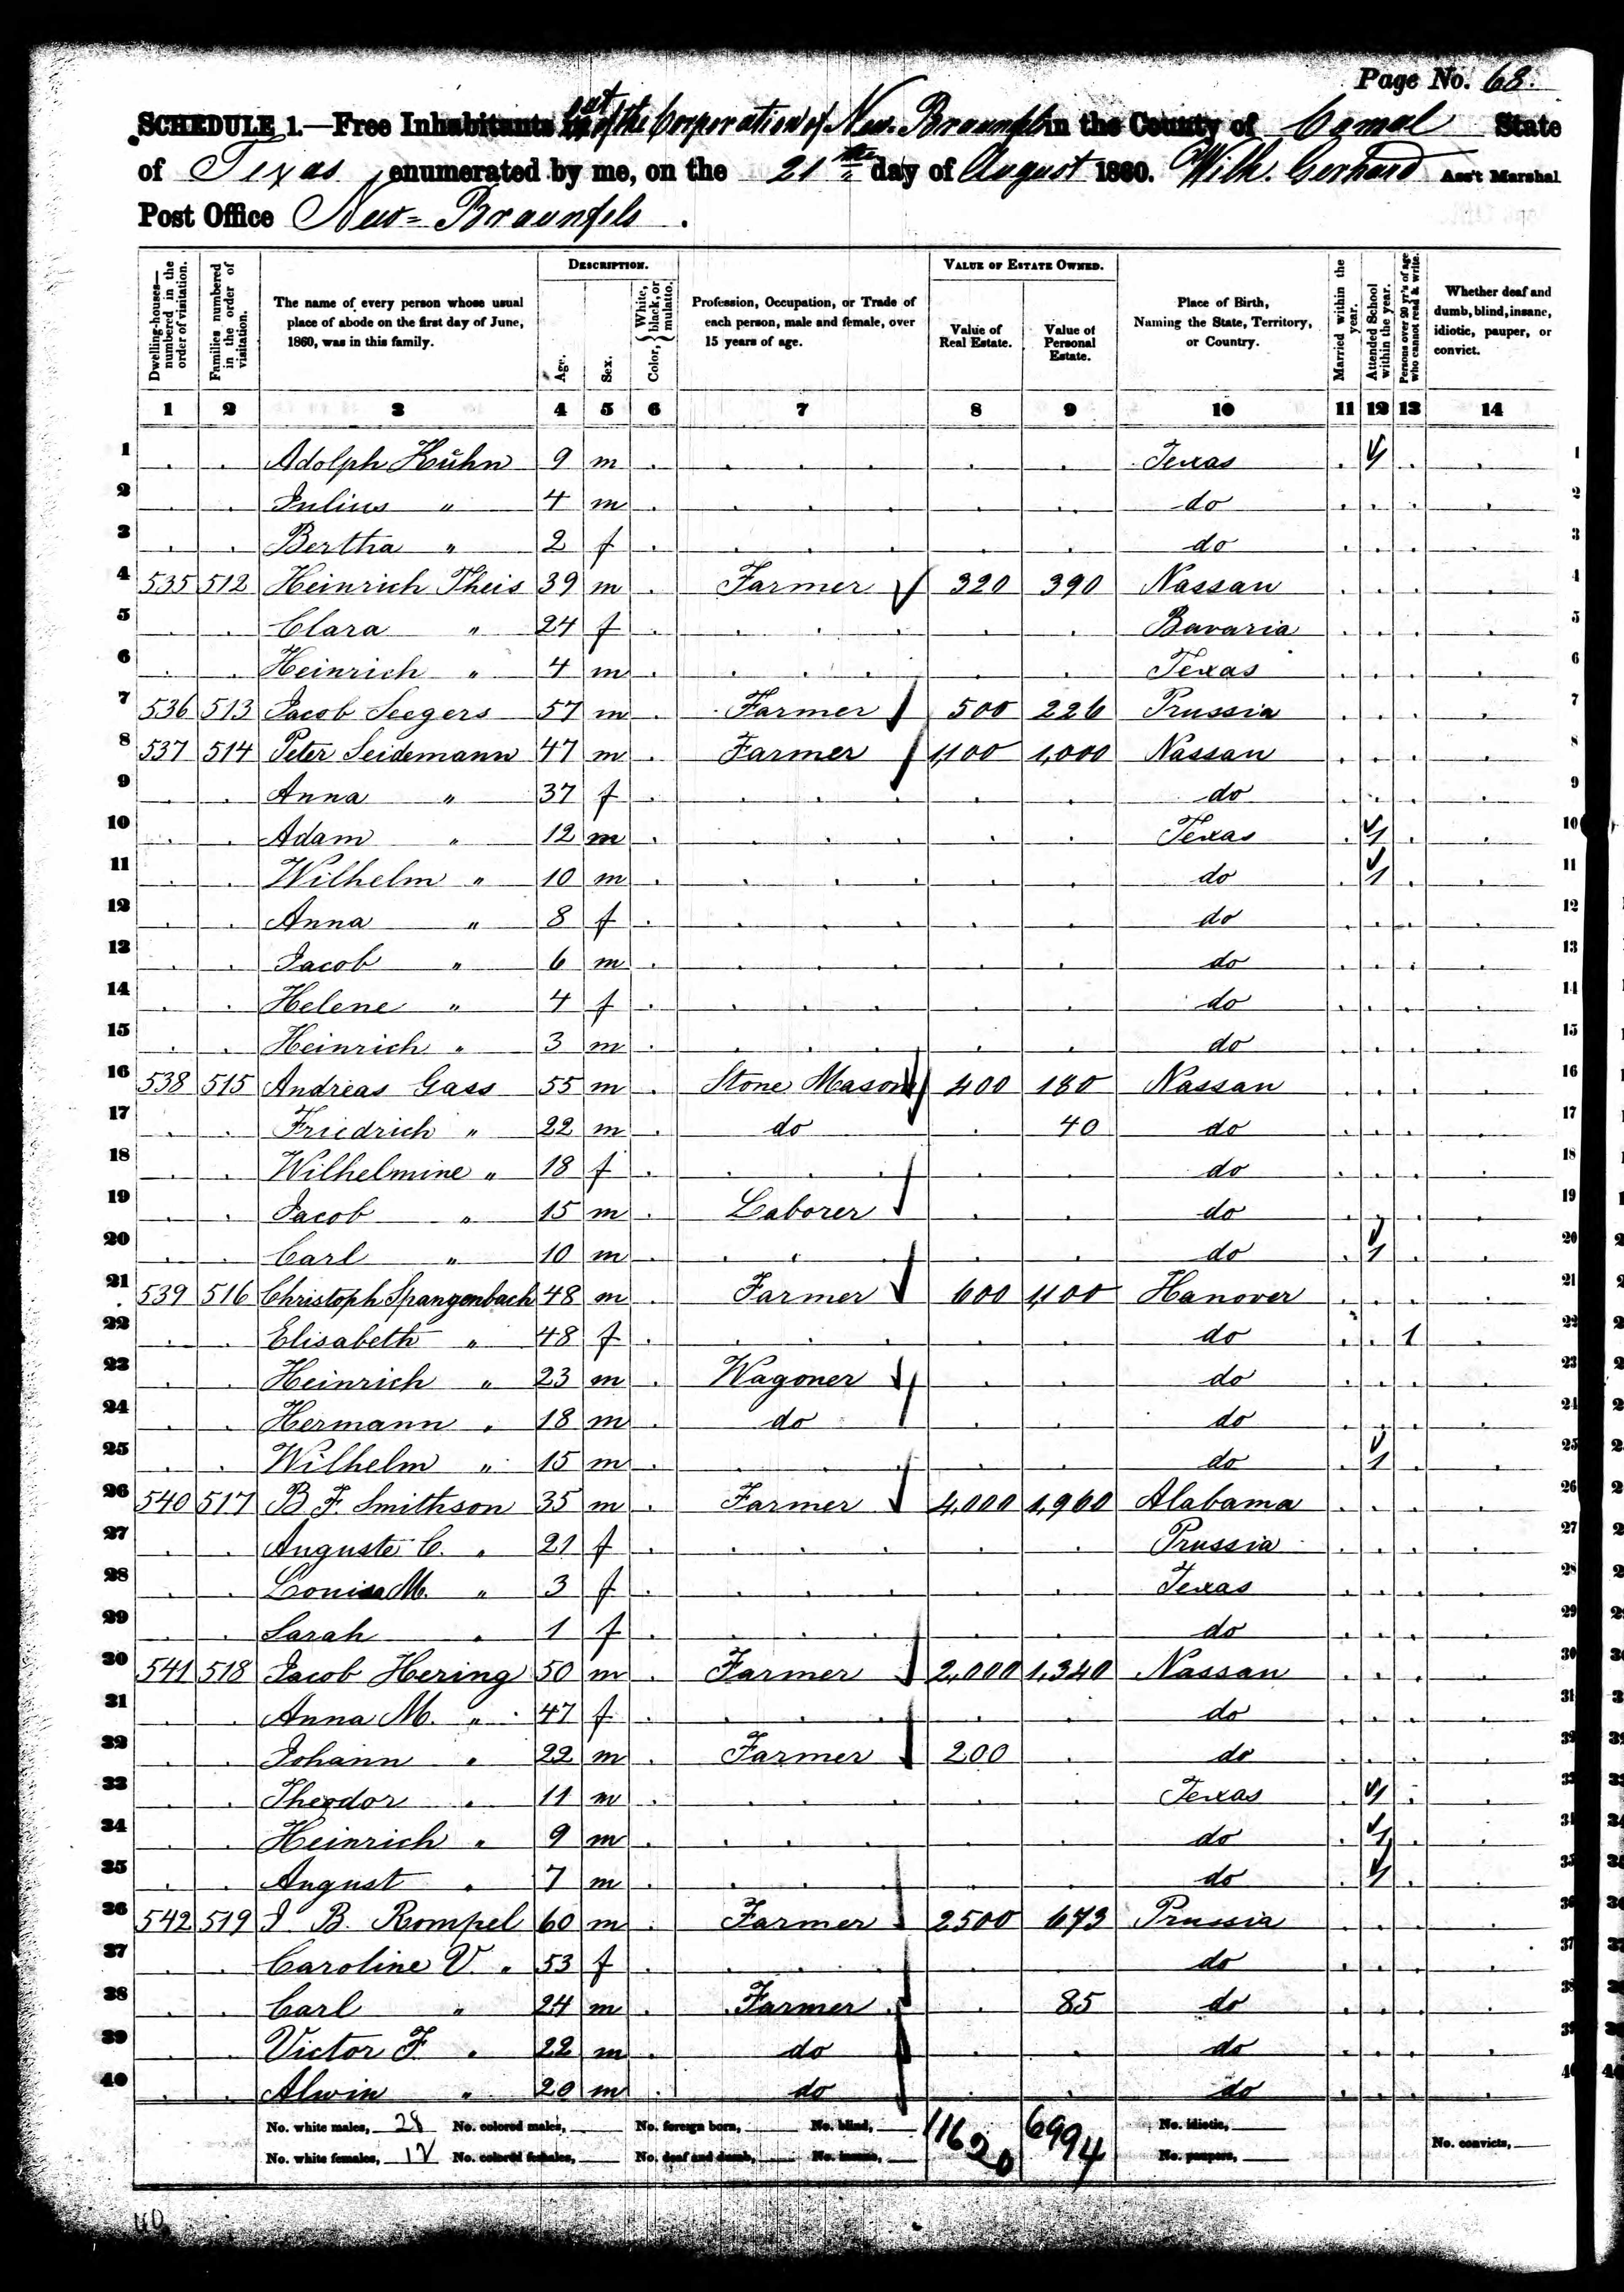 Page No. 68.
SCHEDULE 1.—Free Inhabitants out of the Corporation of New-Braunfels in the County of Comal State
of Texas enumerated by me, on the 21 day of August 1860. Wilh. Gerhard Ass't Marshal
Post Office New-Braunfels.
Dwelling-houses—numbered in the order of visitation.
Families numbered in the order of visitation.
The name of every person whose usual place of abode on the first day of June, 1860, was in this family.
DESCRIPTION.
Age.
Sex.
Color, { White, black, or mulatto.
Profession, Occupation, or Trade of each person, male and female, over 15 years of age.
VALUE OF ESTATE OWNED.
Value of Real Estate.
Value of Personal Estate.
Place of Birth, Naming the State, Territory, or Country.
Married within the year.
Attended School within the year.
Persons over 20 yr's of age who cannot read & write.
Whether deaf and dumb, blind, insane, idiotic, pauper, or convict.
1 2 3 4 5 6 7 8 9 10 11 12 13 14
1 Adolph Kühn 9 m Texas 1 1
2 Julius " 4 m do 2
3 Bertha " 2 f do 3
4 535 512 Heinrich Theis 39 m Farmer 320 390 Nassau 4
5 Clara " 24 f Bavaria 5
6 Heinrich " 4 m Texas 6
7 536 513 Jacob Seegers 57 m Farmer 500 226 Prussia 7
8 537 514 Peter Seidemann 47 m Farmer 1,100 1,000 Nassau 8
9 Anna " 37 f do 9
10 Adam " 12 m Texas 1 10
11 Wilhelm " 10 m do 1 11
12 Anna " 8 f do 12
13 Jacob " 6 m do 13
14 Helene " 4 f do 14
15 Heinrich " 3 m do 15
16 538 515 Andreas Gass 55 m Stone Mason 400 180 Nassau 16
17 Friedrich " 22 m do 40 do 17
18 Wilhelmine " 18 f do 18
19 Jacob " 15 m Laborer do 19
20 Carl " 10 m do 1 20
21 539 516 Christoph Spangenbach 48 m Farmer 600 1,100 Hanover 21
22 Elisabeth " 48 f do 1 22
23 Heinrich " 23 m Wagoner do 23
24 Hermann " 18 m do do 24
25 Wilhelm " 15 m do 1 25
26 540 517 B. F. Smithson 35 m Farmer 4,000 1,960 Alabama 26
27 Auguste C. " 21 f Prussia 27
28 Louisa M. " 3 f Texas 28
29 Sarah " 1 f do 29
30 541 518 Jacob Hering 50 m Farmer 2,000 1,340 Nassau 30
31 Anna M. " 47 f do 31
32 Johann " 22 m Farmer 200 do 32
33 Theodor " 11 m Texas 1 33
34 Heinrich " 9 m do 1 34
35 August " 7 m do 1 35
36 542 519 J B. Rompel 60 m Farmer 2500 673 Prussia 36
37 Caroline V. " 53 f do 37
38 Carl " 24 m Farmer 85 do 38
39 Victor F. " 22 m do do 39
40 Alwin " 20 m do do 40
No. white males, 28 No. colored males, No. foreign born, No. blind, 11620 6994 No. idiotic,
No. white females, 12 No. colored females, No. deaf and dumb, No. insane, No. paupers, No. convicts,
40